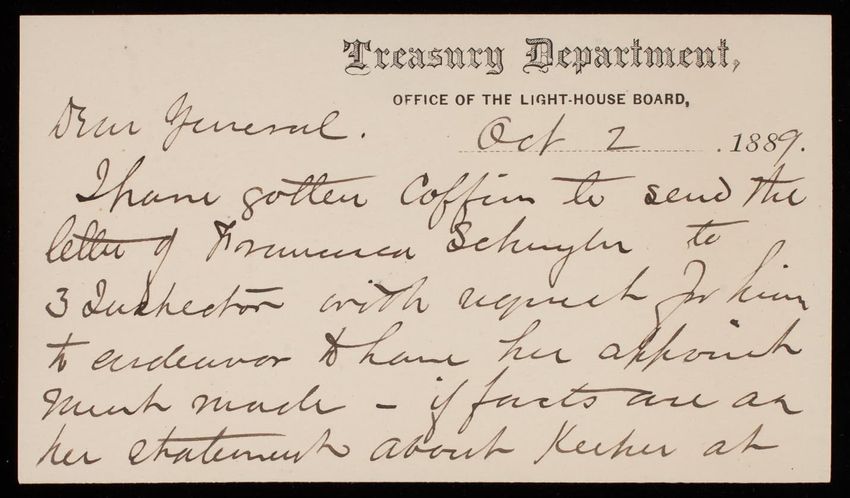 Treasury Department,
OFFICE OF THE LIGHT-HOUSE BOARD,
Dear General.
Oct 2 1889.
I have gotten Coffin to send the
letter of Francisca Schuyler to
3 Inspector with request for him
to endeavor to have her appoint
ment made - if facts are as
her statement about Keeper at